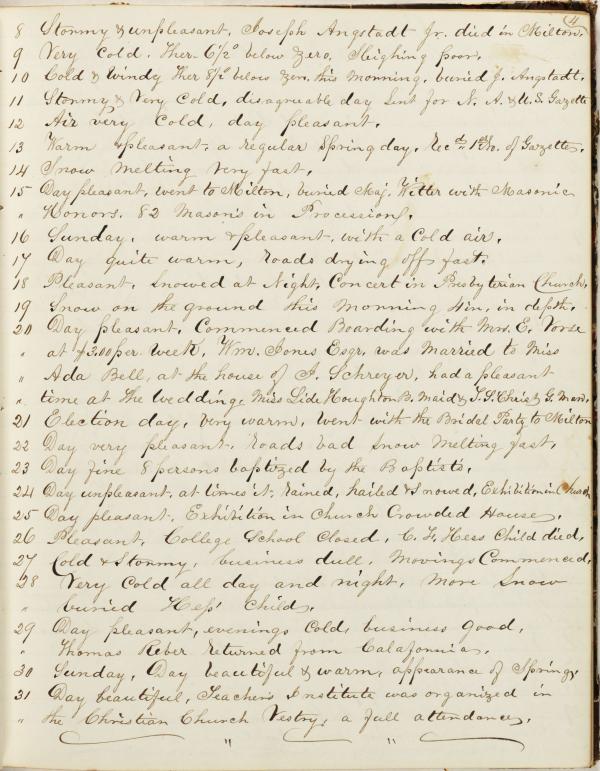 4
8 Stormy & unpleasant. Joseph Angstadt Jr. died in Milton.
9 Very Cold. Ther. 6 1/2° below Zero, Sleighing poor.
10 Cold & Windy Ther 8 1/2° below Zero. this Morning, buried J. Angstadt.
11 Stormy & Very Cold, disagreeable day Sent for N. A. & U.S. Gazette
12 Air very Cold, day pleasant.
13 Warm & pleasant, a regular Spring day, Recd. 1st No. of Gazette.
14 Snow melting very fast.
15 Day pleasant, went to Milton, buried Maj. Witter with Masonic
" Honors. 82 Mason's in Procession.
16 Sunday. warm & pleasant, with a Cold air.
17 Day quite warm, roads drying off fast.
18 Pleasant, Snowed at Night, Concert in Presbyterian Church.
19 Snow on the ground this Morning 4 in, in depth.
20 Day pleasant. Commenced Boarding with Mrs. E. Vorse
" at $3.00 per week, Wm. Jones Esqr. was Married to Miss
" Ada Bell, at the house of J. Schreyer, had a pleasant
" time at the wedding. Miss Lide Houghton B. Maid & J. F. Christ G. Man.
21 Election day, Very warm, Went with the Bridal Party to Milton
22 Day very pleasant. Roads bad Snow Melting fast,
23 Day fine 8 persons baptized by the Baptists.
24 Day unpleasant, at times it rained, hailed & Snowed, Exhibition in Church
25 Day pleasant, Exhibition in Church Crowded House.
26 Pleasant, College School Closed, C. F. Hess Child died,
27 Cold & Stormy, business dull, Movings Commenced,
28 Very Cold all day and night, More Snow
" buried Hess' Child,
29 Day pleasant, evenings Cold, business Good,
" Thomas Reber returned from Calafornnian.
30 Sunday, Day beautiful & warm, appearance of Spring,
31 Day beautiful, Teacher's Institute was organized in
" the Christian Church Vestry, a full attendance.
" "